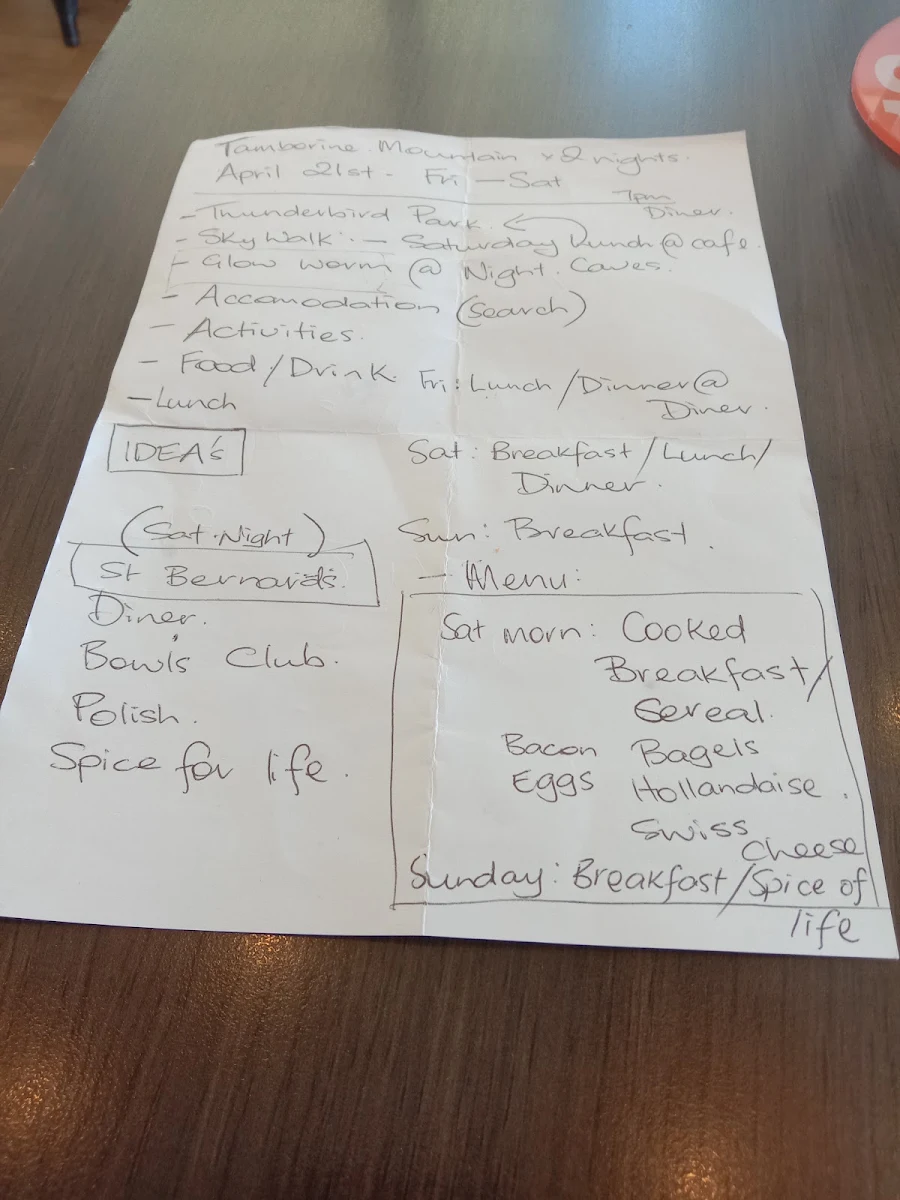 Tamborine Mountain x 2 nights.
April 21st - Fri — Sat
7pm
Diner.
- Thunderbird Park.
- Sky Walk - Saturday Lunch @ cafe.
- Glow worm @ Night. Caves.
- Accomodation (Search)
- Activities.
- Food / Drink.
- Lunch
Fri: Lunch / Dinner @
Diner.
IDEA's
Sat: Breakfast / Lunch /
Dinner.
Sun: Breakfast.
(Sat. Night)
St Bernards.
Diner.
Bowls Club.
Polish.
Spice for life.
- Menu:
Sat morn: Cooked
Breakfast /
Cereal.
Bacon Bagels
Eggs Hollandaise.
Swiss
Cheese
Sunday: Breakfast / Spice of
life